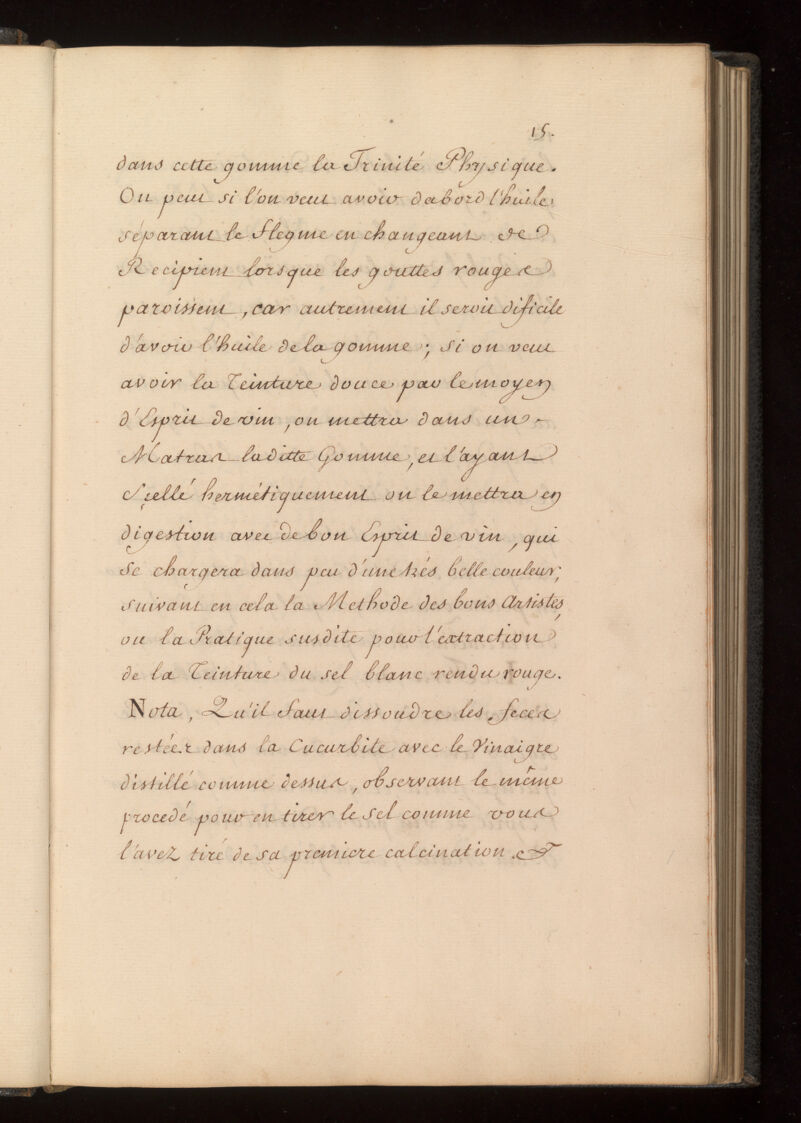 15.
dans cette gomme la Trinité Physique.
On peut si l'on veut avoir dabord l'huile
séparant le flegme en changeant de
Recipient lorsque les gouttes rouges
paroissent, car autrement il seroit dificile
d'avoir l'huile de la gomme; si on veut
avoir la Teinture douce par le moyen
d'Esprit de vin, on mettra dans un
Matras laditte Gomme, et l'ayant
scellé hermétiquement on le mettra en
digestion avec de bon Esprit de vin, qui
se chargera dans peu d'une trés belle couleur;
suivant en cela la Methode des bons Artistes,
ou la Pratique susdite pour l'extraction
de la Teinture du sel blanc rendu rouge.
Nota, Qu'il faut dissoudre les feces
restées dans la Cucurbite avec le Vinaigre
distillé comme dessus, observant le même
procedé pour en tirer le sel comme vous
l'avez tiré de sa premiere calcination.